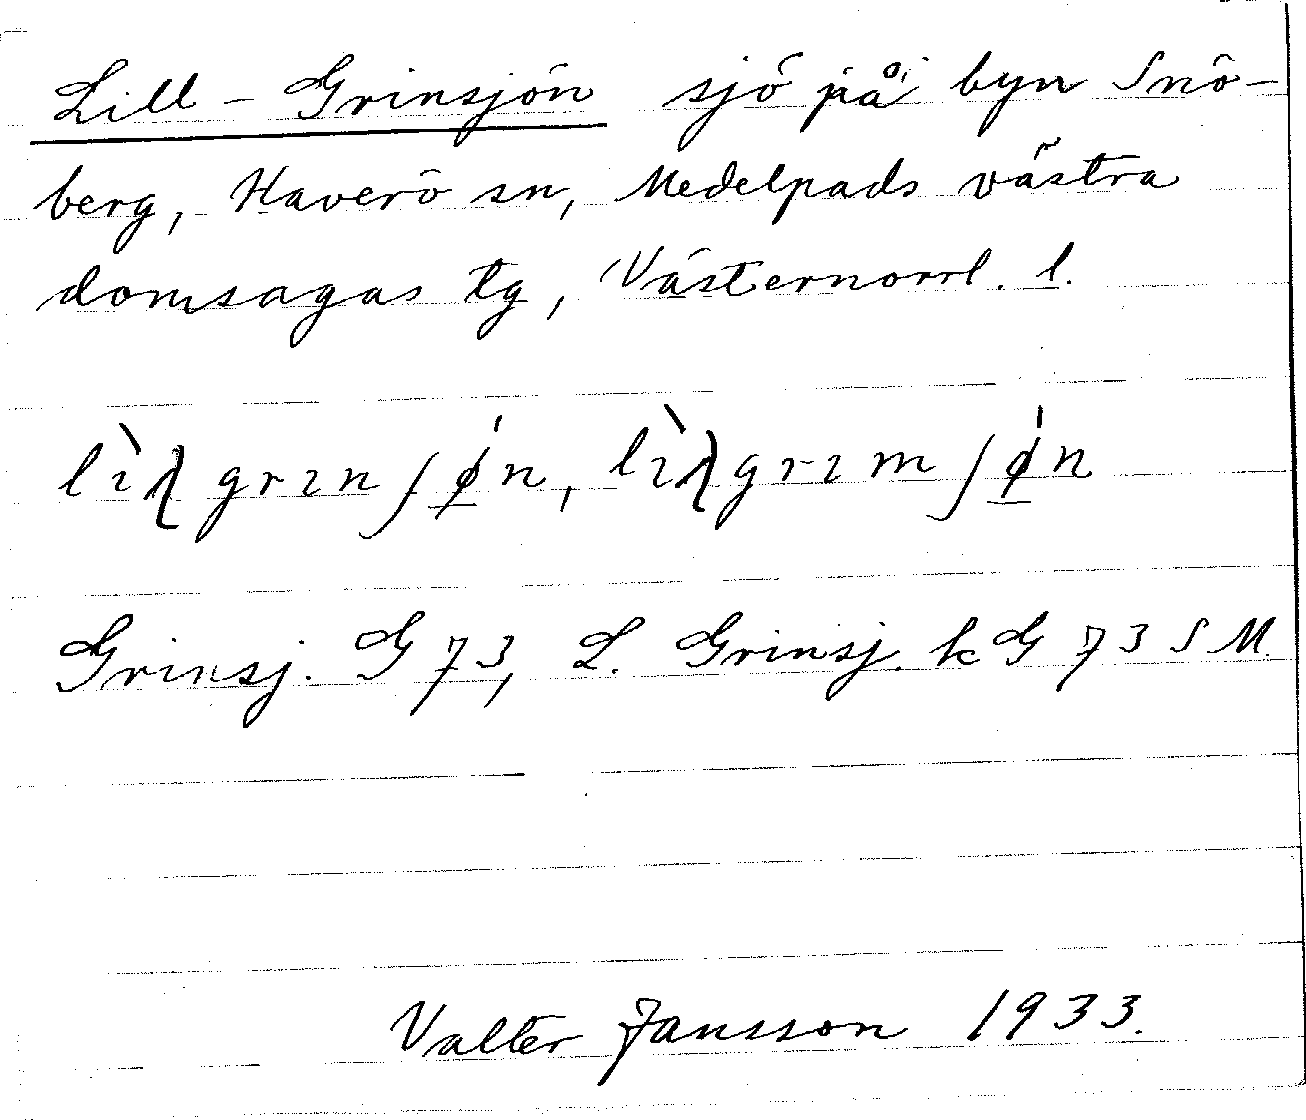 Lill-Grinsjön sjö på byn Snö-
berg, Haverö sn, Medelpads västra
domsagas tg, Västernorrl. l.
Grinsj. G 73, L. Grinsj. kG 73 S M.
Valter Jansson 1933.